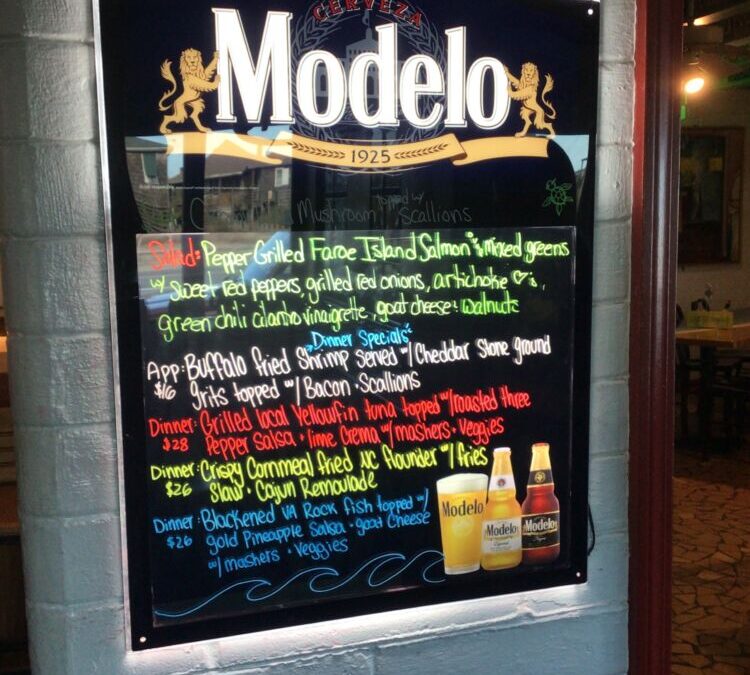 CERVEZA
Modelo
1925
topped w/
Mushroom scallions
Salad: Pepper Grilled Faroe Island Salmon mixed greens
w/ sweet red peppers, grilled red onions, artichoke ♡'s,
green chili cilantro vinaigrette, goat cheese & walnuts
Dinner Specials
App: Buffalo fried Shrimp served w/ Cheddar Stone ground
$16 grits topped w/ Bacon + Scallions
Dinner: Grilled local Yellowfin tuna topped w/ roasted three
$28 Pepper Salsa + lime Crema w/ mashers + Veggies
Dinner: Crispy Cornmeal fried NC flounder w/ fries
$26 Slaw + Cajun Remoulade
Dinner: Blackened VA Rock fish topped w/
$26 gold Pineapple Salsa + goat Cheese
w/ mashers + Veggies
Modelo
Modelo
Modelo